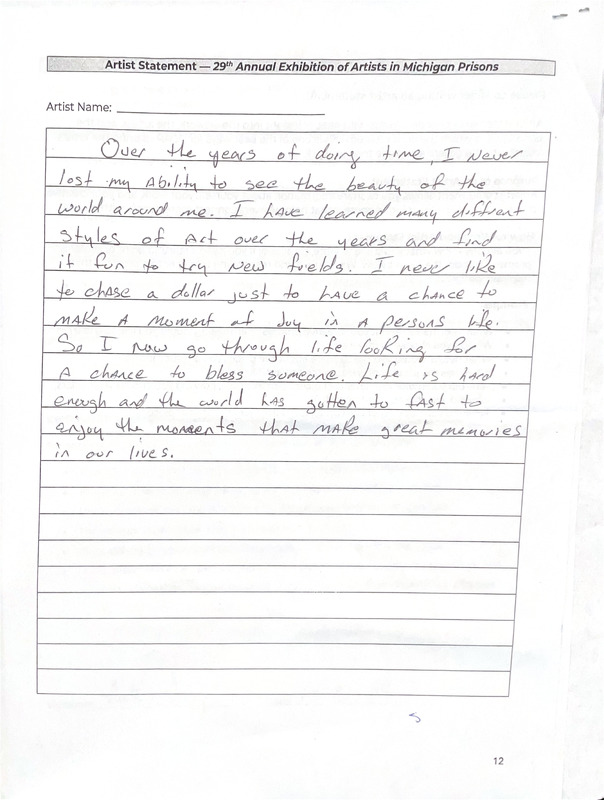 Artist Statement — 29th Annual Exhibition of Artists in Michigan Prisons
Artist Name:
Over the years of doing time, I never
lost my Ability to see the beauty of the
world around me. I have learned many diffrent
styles of Art over the years and find
it fun to try new fields. I never like
to chase a dollar just to have a chance to
make A moment of Joy in A persons life.
So I now go through life looking for
A chance to bless someone. Life is hard
enough and the world has gotten to fast to
enjoy the moments that make great memories
in our lives.
S
12